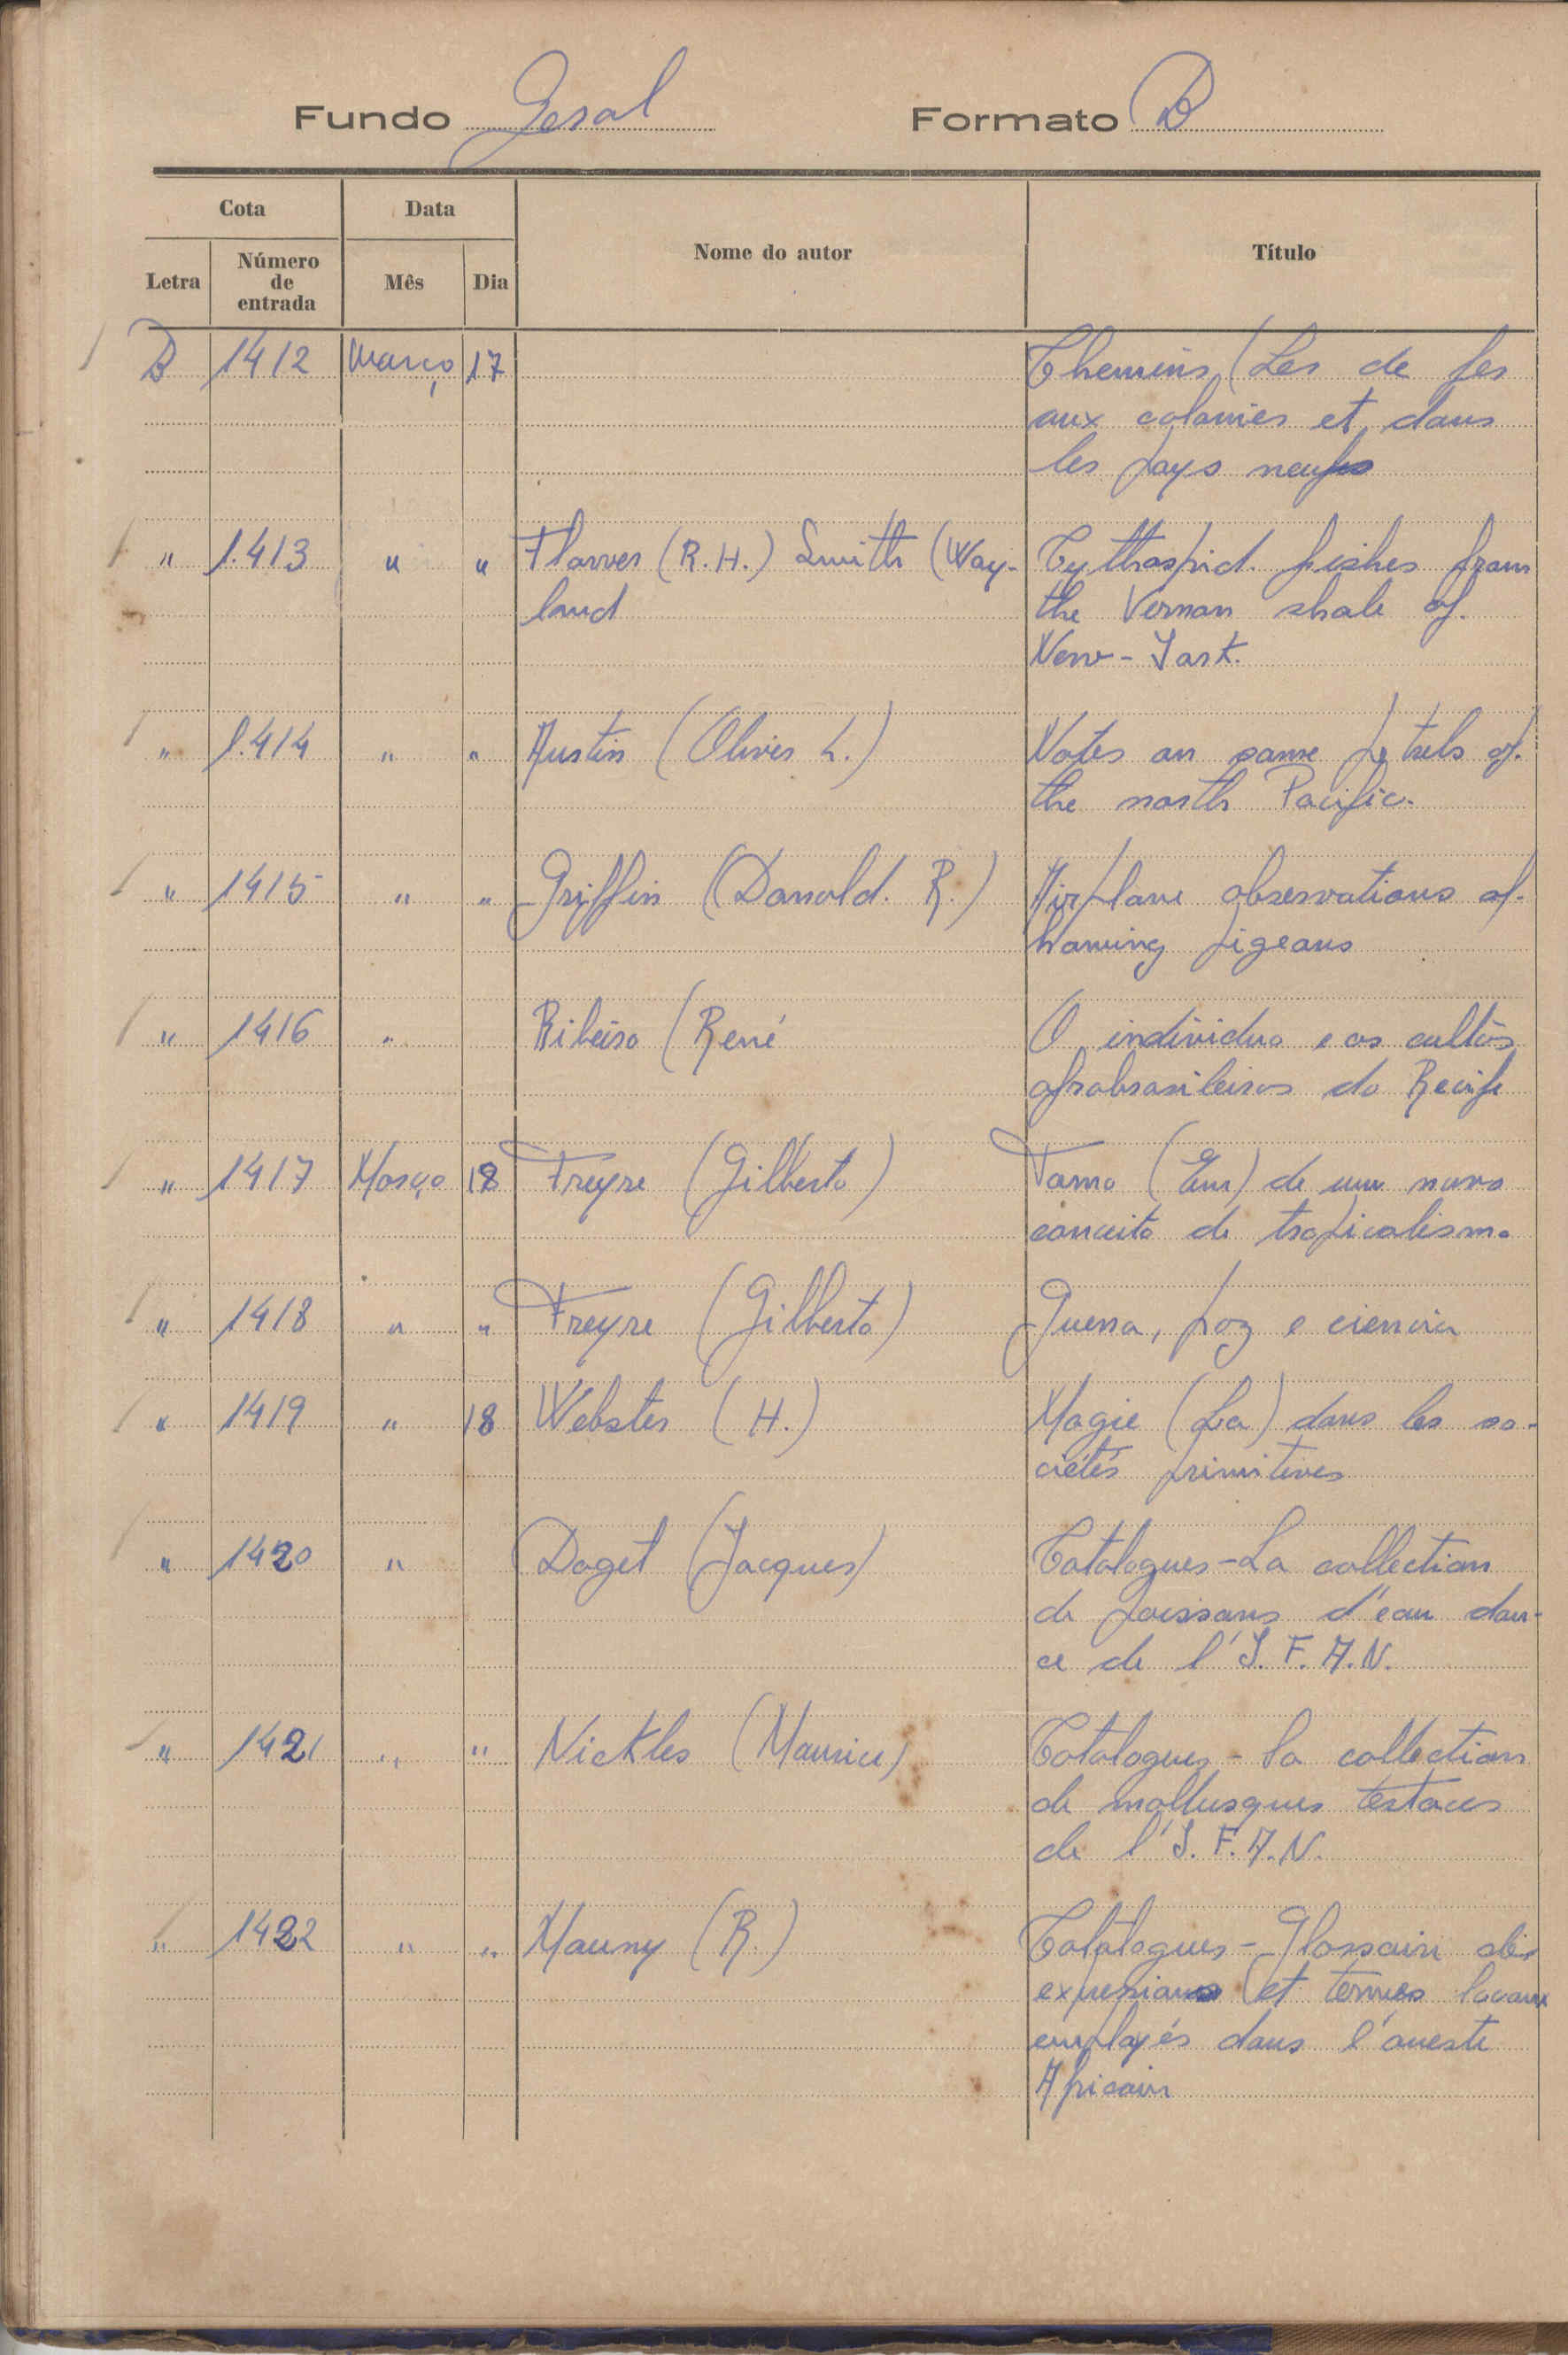 Fundo Geral Formato B
Cota Data Nome do autor Título
Letra Número de entrada Mês Dia
B 1412 Março 17 Chemins (Les de fer
aux colonies et dans
les pays neufs
" 1.413 " " Flower (R.H.) Smith (Way- Cythaspid fishes from
land the Vernon shale of
New-York.
" 1.414 " " Austin (Oliver L.) Notes on some petrels of
the north Pacific.
" 1415 " " Griffin (Donald. R.) Airplane observations of
homing pigeons
" 1416 " Ribeiro (René O individuo e os cultos
afrobrasileiros do Recife
" 1417 Março 18 Freyre (Gilberto) Torno (Em) de um novo
conceito de tropicalismo
" 1418 " " Freyre (Gilberto) Guerra, paz e ciencia
" 1419 " 18 Webster (H.) Magie (La) dans les so-
ciétés primitives
" 1420 " Daget (Jacques) Catalogues-La collection
de poissons d'eau dou-
ce de l'I.F.A.N.
" 1421 " " Nickles (Maurice) Catalogues - La collection
de mollusques testaces
de l'I.F.A.N.
" 1422 " " Mauny (R.) Catalogues - Glossaire des
expresions et termes locaux
employés dans l'oueste
Africain